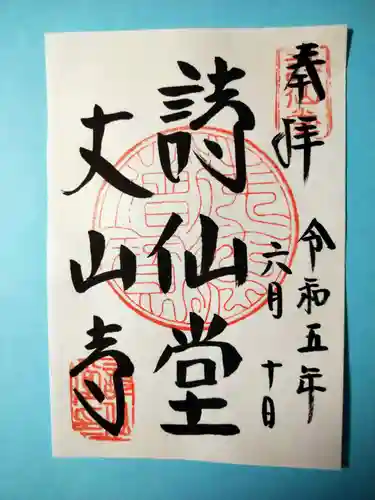 奉拝
令和五年
六月
十日
詩仙堂
丈山寺